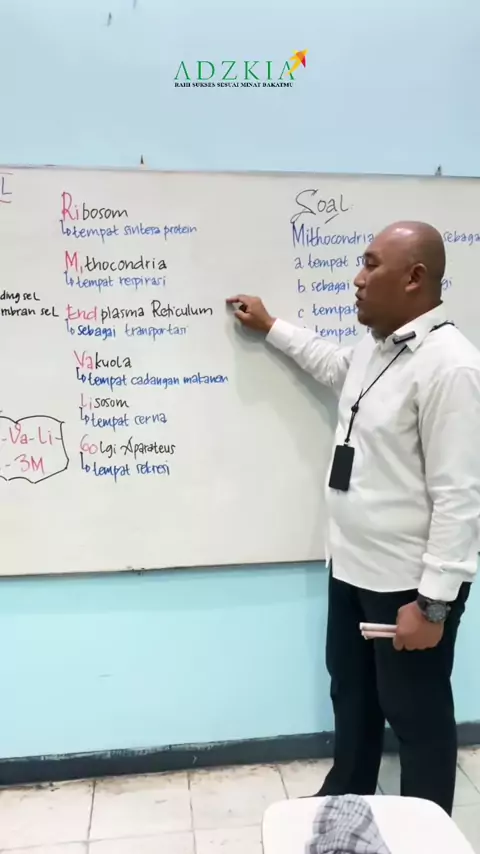 ADZKIA
RAIH SUKSES SESUAI MINAT BAKATMU
L
Ribosom
↳ tempat sintesa protein
Mithocondria
↳ tempat respirasi
ding sel
mbran sel
Endplasma Reticulum
↳ sebagai transportasi
Vakuola
↳ tempat cadangan makanan
Lisosom
↳ tempat cerna
Golgi Aparateus
↳ tempat sekresi
-Va-Li-
- 3M
Soal
Mithocondria sebaga
a tempat
b sebagai
c tempat
tempat